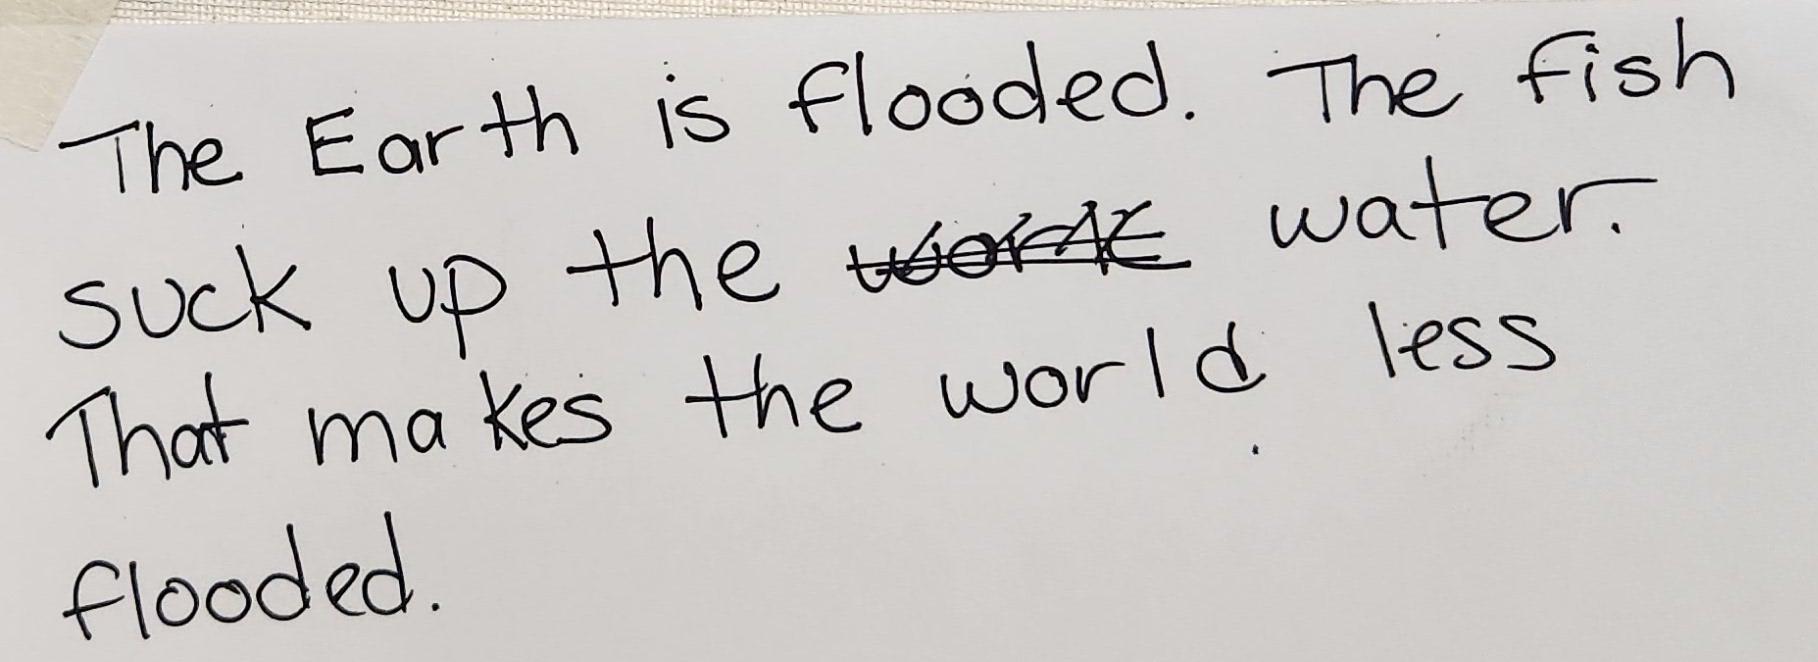 The Earth is flooded. The fish
suck up the water.
That makes the world less
flooded.